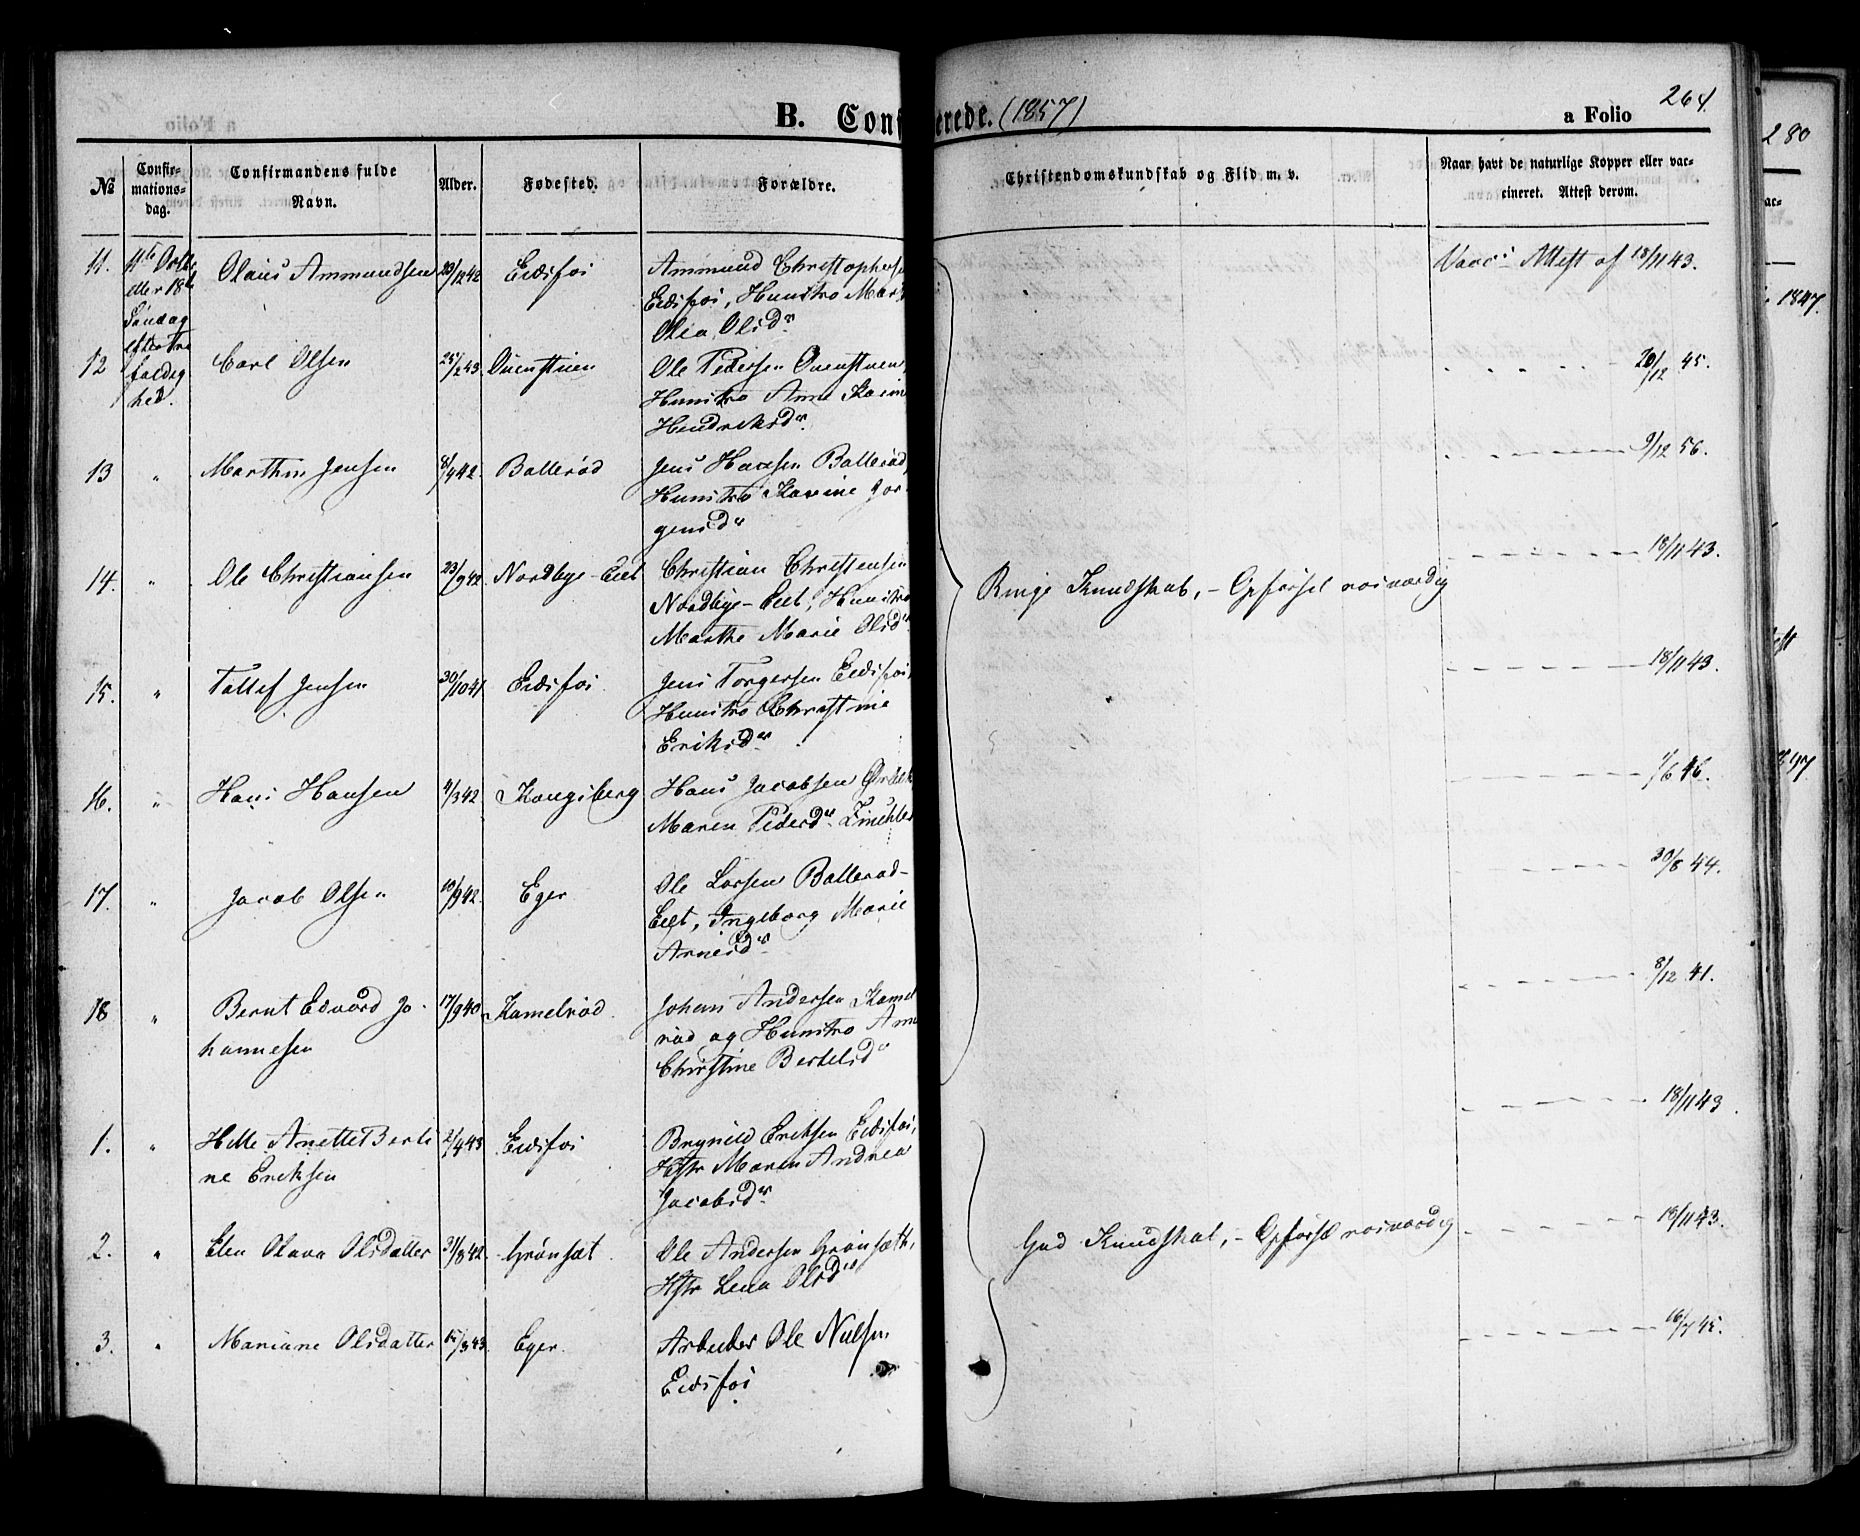 264.
B. Conf erede. (1857)
a Folio
280
№
Confir-
mations-
dag.
Confirmandens fulde
Navn.
Alder.
Fødested.
Forældre.
Christendomskundskab og Flid m. v.
Naar havt de naturlige Kopper eller vac-
cineret. Attest derom.
11.
4de Octbr
eller 18de
Søndag
efter Tre
foldig
hed.
Olaus Ammundsen
23/12 42
Eidsfos
Ammund Christophers
Eidsfos, Hustro Mar
Olea Olsdr
Vacc: Attest af 18/11 43.
1847.
12
Carl Olsen
25/2 43
Ole Pedersen
Hustro Anne Karine
Hendriksdr
20/12 45.
13
"
Marthin Jensen
8/4 42.
Ballerød
Jens Hansen Ballerød,
Hustro Karine Jør-
gensdr
9/12 56.
14.
"
Ole Christiansen
23/9 42.
Nordbye-Eiet
Christian Christensen
Nordbye-Eiet, Hustro
Marthe Marie Olsdr
Ringe Kundskab, - Opførsel rosværdig
18/11 43.
15.
"
Tollef Jensen
30/10 41.
Eidsfos
Jens Torgersen Eidsfos,
Hustro Christine
Eriksdr
18/11 43.
16.
"
Hans Hansen
4/3 42
Kongsberg
Hans Jacobsen
Maren Pedersdr
1/6 46.
17.
"
Jacob Olsen
10/9 42.
Eger
Ole Larsen Ballerød-
Eiet, Ingeborg Marie
Arnesdr
30/8 44.
18
"
Bernt Edvard Jo-
hannesen
17/9 40.
Kamelrød
Johan Andersen Kamel
rød og Hustro Anne
Christine Bertelsdr
8/12 41.
1.
"
Helle Anette Berti
ne Eriksen
2/4 43
Eidsfos
Brynild Eriksen Eidsfos,
Hstr Maren Andrea
Jacobsdr
18/11 43
2.
"
Elen Olava Olsdatter
31/8 42.
Grønsæt
Ole Andersen Grønsæth,
Hstr Lena Olsdr
God Kundskab, - Opførsel rosværdig
18/11 43.
3.
"
Mariane Olsdatter
15/3 43.
Eger
Arbeider Ole Nielsen
Eidsfos
16/7 45.